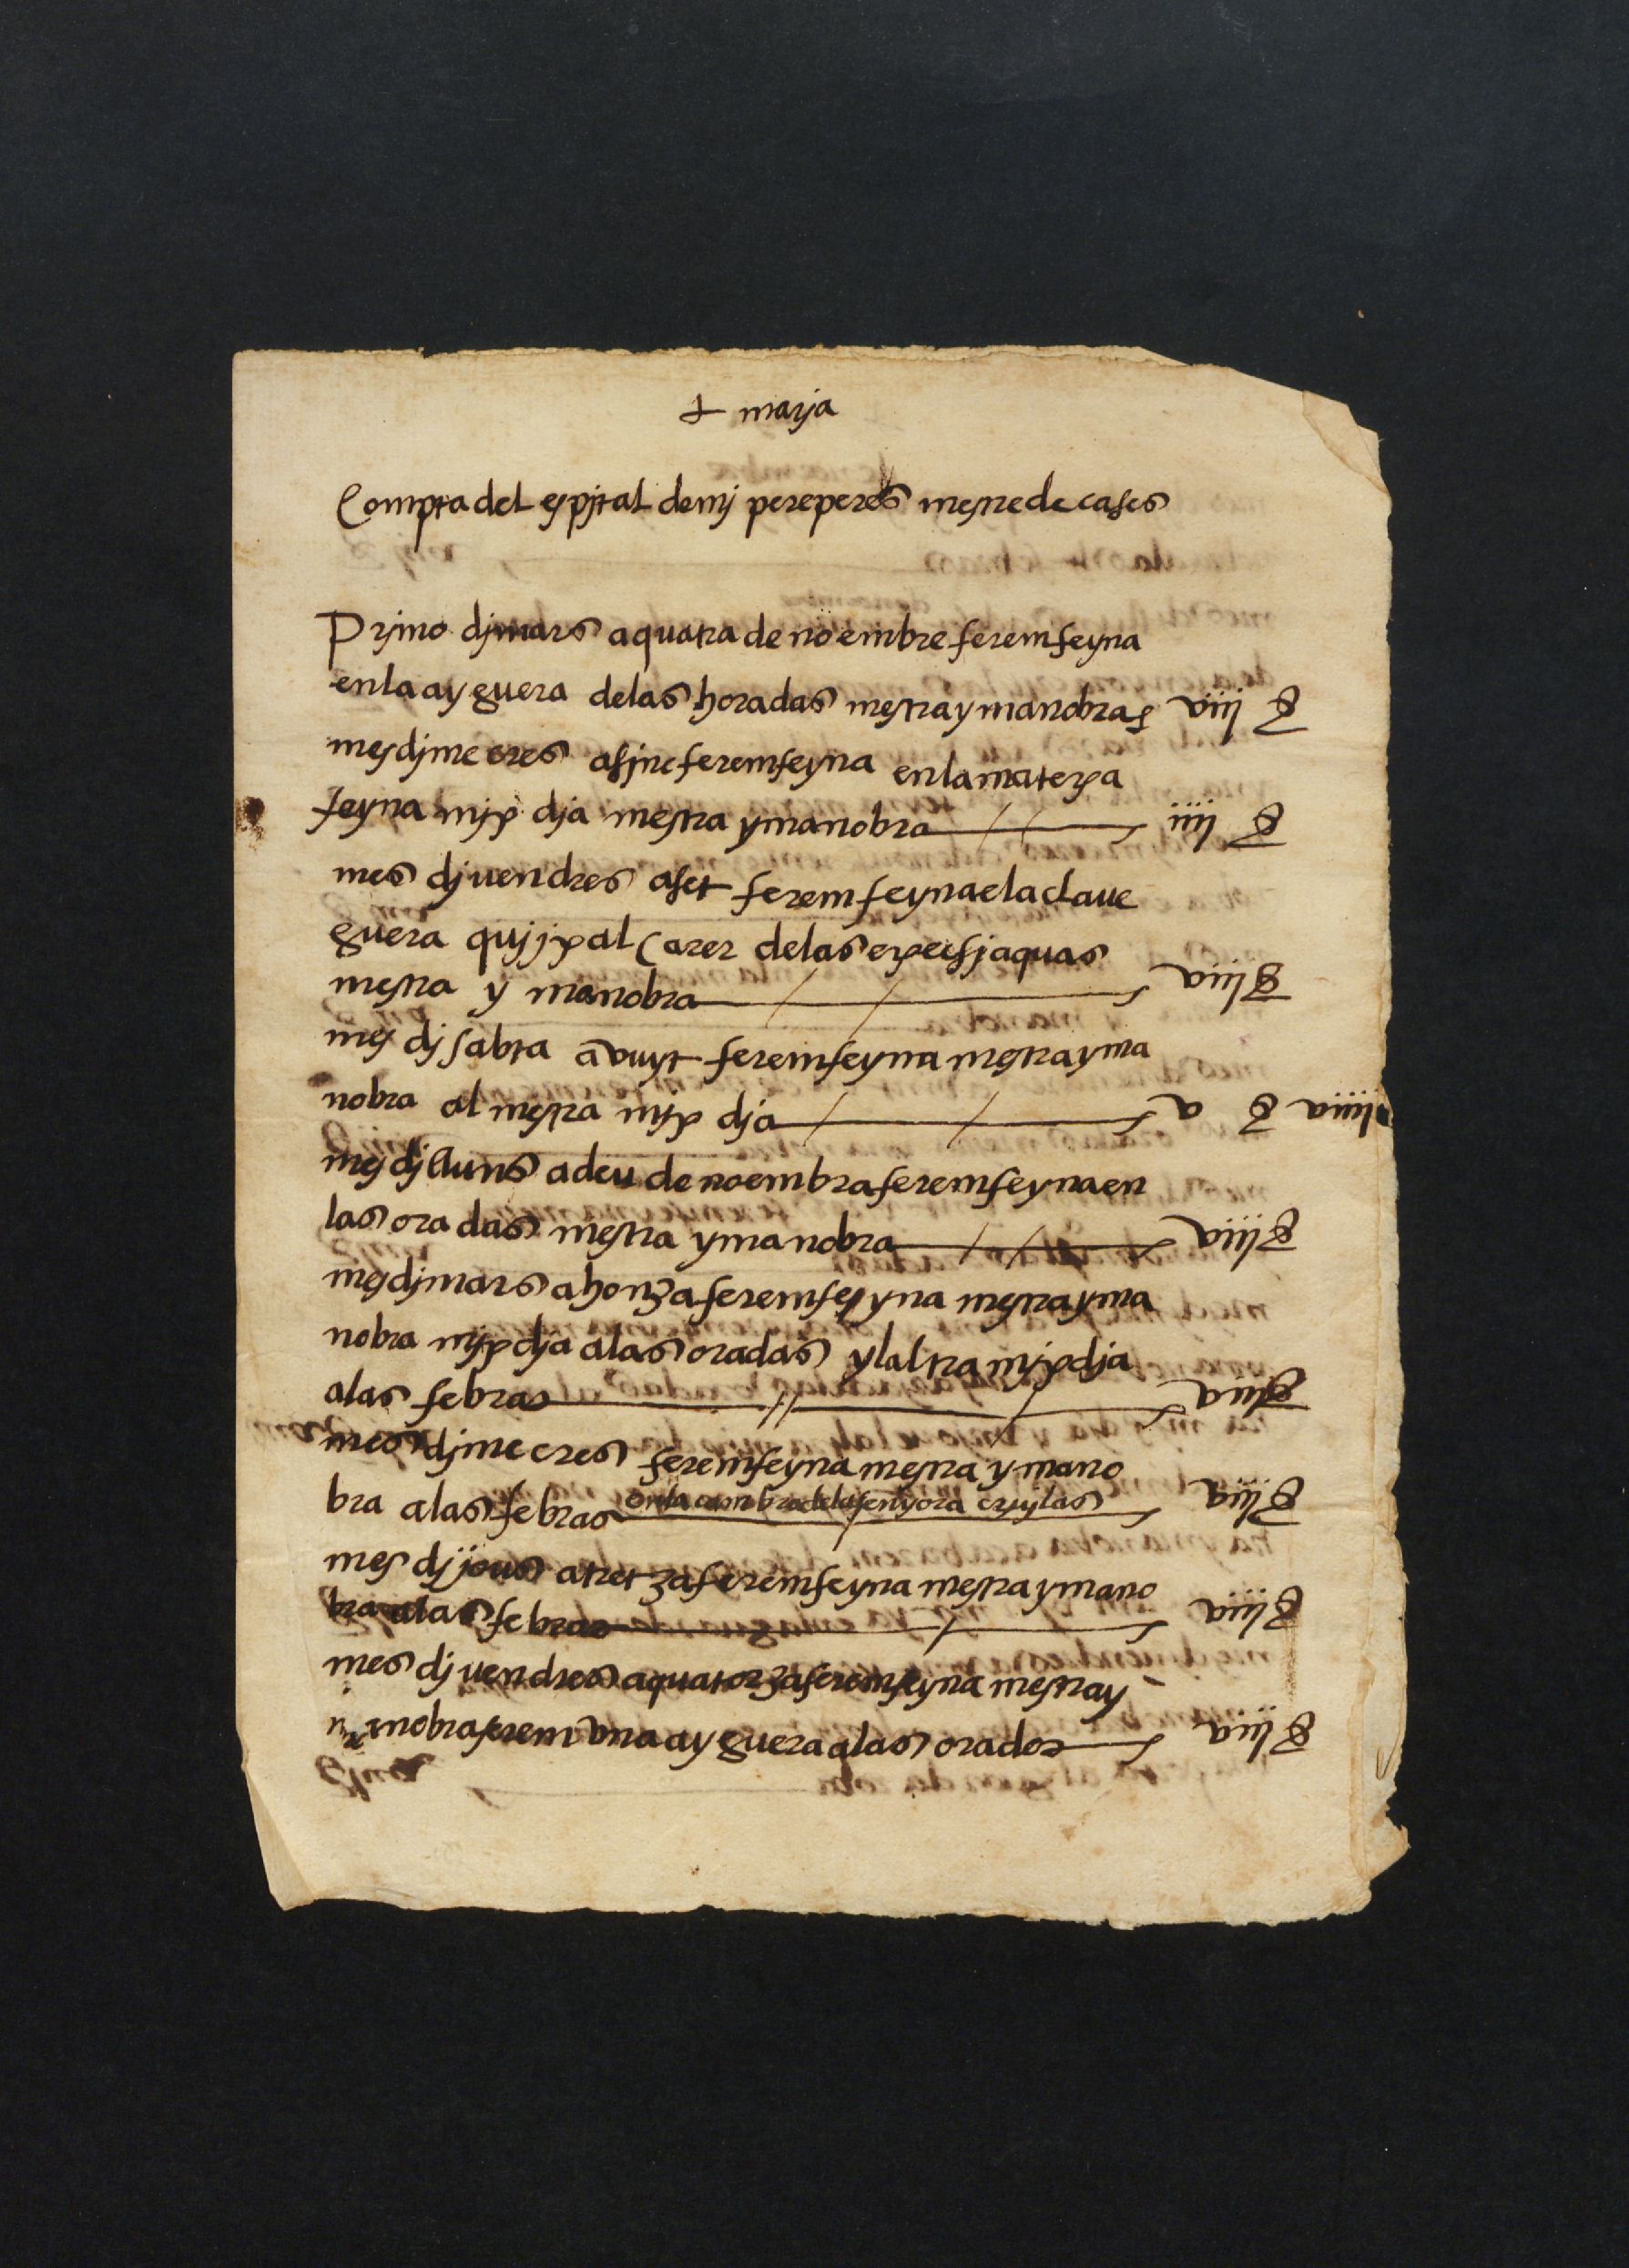 + marja
Compta del espjtal de mj pere peres mestre de cases
Prjmo djmars a quatra de noembre ferem feyna
en la ayguera de las horadas mestra y manobra s viij ß
mes djmecres a sjnc ferem feyna en la mateyxa
feyna mjx dja mestra y manobra s iiij ß
mes djvendres a set ferem feyna e la clave
guera qujx al carer de las
mestra y manobra s viij ß
mes djsabta a vuyt ferem feyna mestra y ma
nobra al mestra mjx dja s
mes djlluns a deu de noembra ferem feyna en
las oradas mestra y manobra s viij ß
mes djmars a honza ferem feyna mestra y ma
nobra mjx dja a las oradas y laltra mjx dja
a las febras s
mes djmecres ferem feyna mestra y mano
en la cambra de la senyora cruylas
bra a las febras s viij ß
mes djjous a tretza ferem feyna mestra y mano
bra a las febras s viij ß
mes djvendres a quatorza ferem feyna mestra y
manobra ferem una ayguera a las orades s viij ß